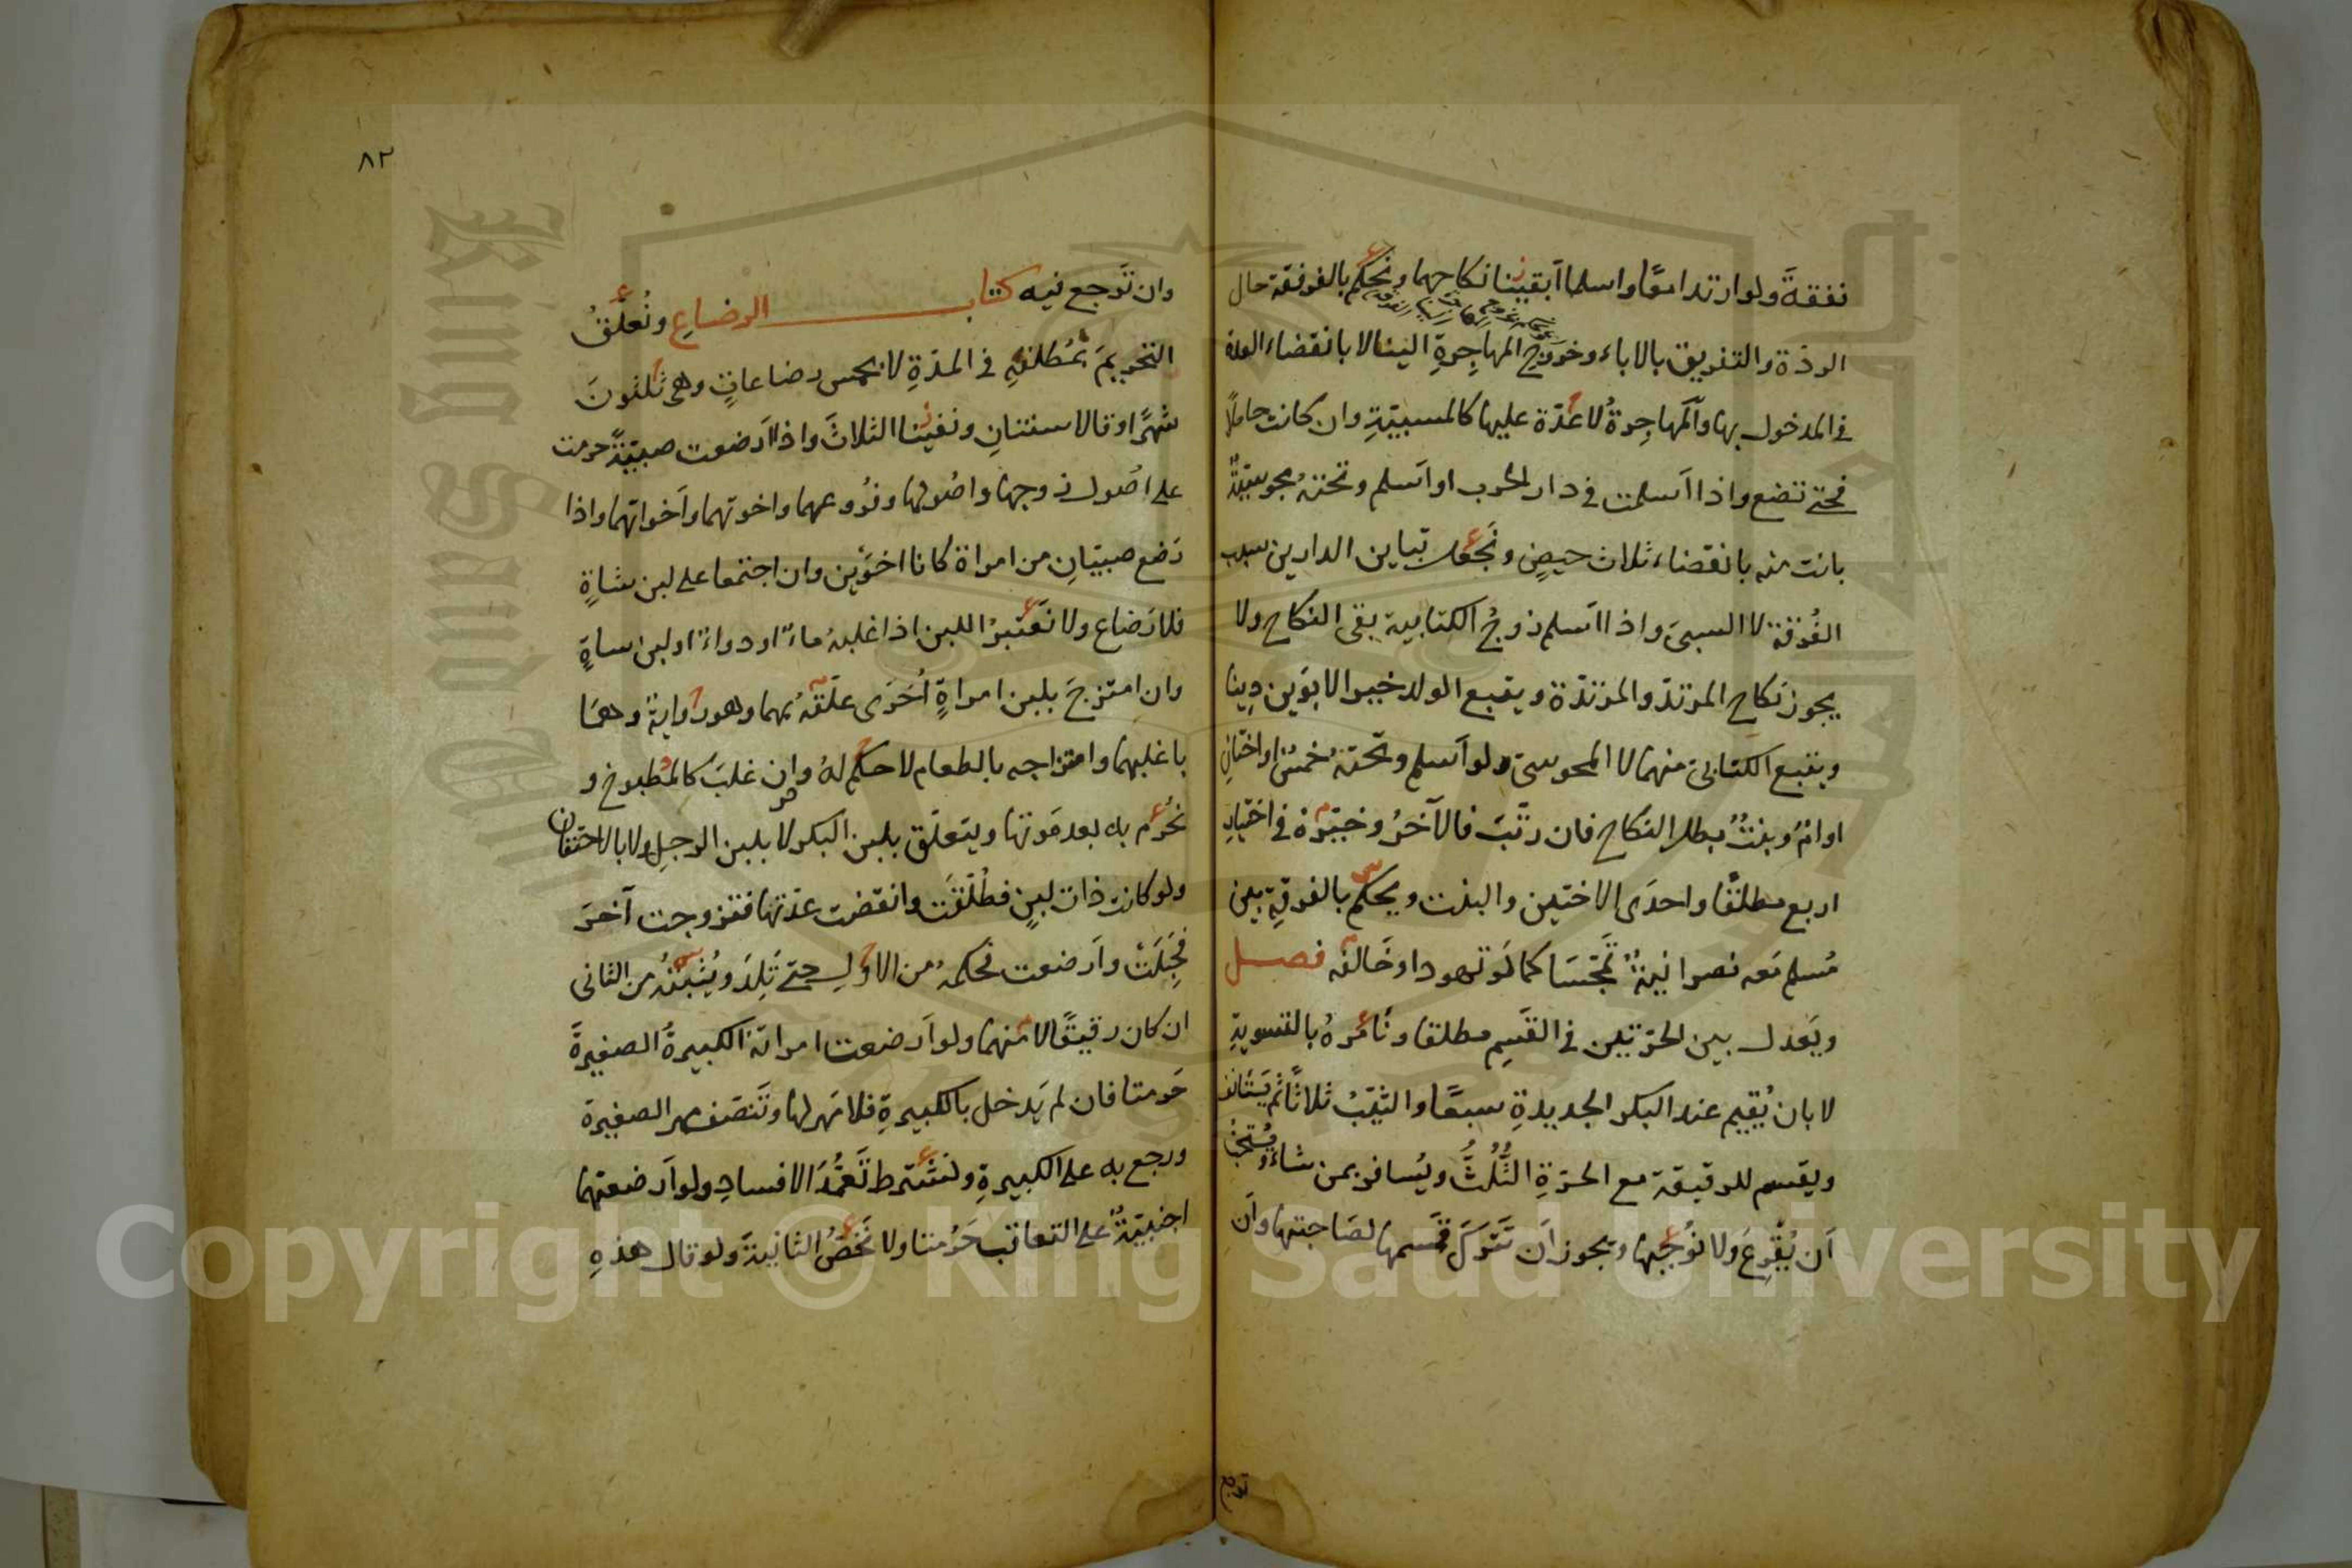 نفقةً ولو ارتدا معًا واسلما اَبقينا نكاحهما ونحكم بالفرقة حال
الردّة والتفريق بالاباء وخروج المهاجِرةِ الينا لا بانقضاء العدة
فى المدخول بها والمهاجِرةُ لا عدّة عليها كالمسبيّةِ وان كانت حاملًا
فحتى تضع واذا اَسلمت فى دار الحرب او اَسلم وتحته مجوسيّةٌ
بانت منه بانقضاء ثلاث حيضٍ ونَجعل تباين الدارين سبب
الفُرْقة لا السبىَ واذا اَسلم زوجُ الكتابية بقى النكاح ولا
يجوز نكاح المرتدّ والمرتدّة ويتبع الولد خير الابوَين دِينا
ويتبع الكتابىّ منهما لا المجوسىّ ولو اَسلم وتحته خمسٌ او اختانِ
او امٌ وبنتٌ بطل النكاح فان رتّبَ فالآخرُ وخيّرهُ فى اختيار
اربع مطلقًا واحدَى الاختين والبنت ويحكم بالفرقةِ بين
مُسلم مَعه نصرانيةٌ تمجّسَا كما لَو تهودا وخَالفه فصل
ويَعدل بين الحرّتين فى القَسِم مطلقا ونَاْمرهُ بالتسويةِ
لا بان يُقيم عند البكر الجديدةِ سبعًا والثيّبْ ثلاثًا ثم يَستانف
ويقسم للرقيقة مع الحرّةِ الثُّلُثَ ويُسافر بمن شاءَ ويُستحبُ
اَن يُقْرِعَ ولا نُوجبُها ويجوز اَن تَترك قسمها لصَاحبتها واَن
ترجع
٨٢
وان تَرجع فيه كتاب الرضاعِ ونُعلّقُ
التحريمَ بمُطلقهِ فى المدّةِ لا بخمس رضاعاتٍ وهى ثلثونَ
شهرًا وقالا سنتانِ ونفينا الثلاثَ واذا اَرضعت صبيّةً حرمت
على اصُول زوجها واصُولها وفُروعهما واخوتهما واَخواتهما واذا
رَضع صبيّانِ من امراة كانا اخوَين وان اجتمعا على لبن شاةٍ
فلا رَضاع ولا نَعتبرُ اللبن اذا غلبهُ ماءٌ او دواءٌ او لبن شاةٍ
وان امتزجَ بلبن امراةٍ اُخرَى علّقهُ بهما وهو روايةٌ وهمَا
باغلبهما وامتزاجه بالطعام لا حكم لهُ وان غلبَ كالمطبوخ و
نحُرّم به بعد مَوتها ويتعلّق بلبن البكر لا بلبن الرجلِ ولا بالاحتقان
ولو كانت ذات لبنٍ فطُلّقَت وانقضت عدّتها فتزوجت آخرَ
فحَبَلَتْ واَرضعت فحكمهُ من الاولِ حتى تَلِدَ ويُثبتُهُ من الثانى
ان كان رقيقًا لا منهما ولو اَرضعت امراتهُ الكبيرةُ الصغيرةَ
حَرمتا فان لم يَدخل بالكبيرةِ فلا مَهر لها وتَنصّف مهر الصغيرة
ورجع به على الكبيرةِ ولنشترط تَعمّدَ الافسادِ ولو اَرضعتهما
اجنبيّةٌ على التعاقب حَرُمتا ولا نَخصُّ الثانيةَ ولو قال هذهِ
Copyright © King Saud University